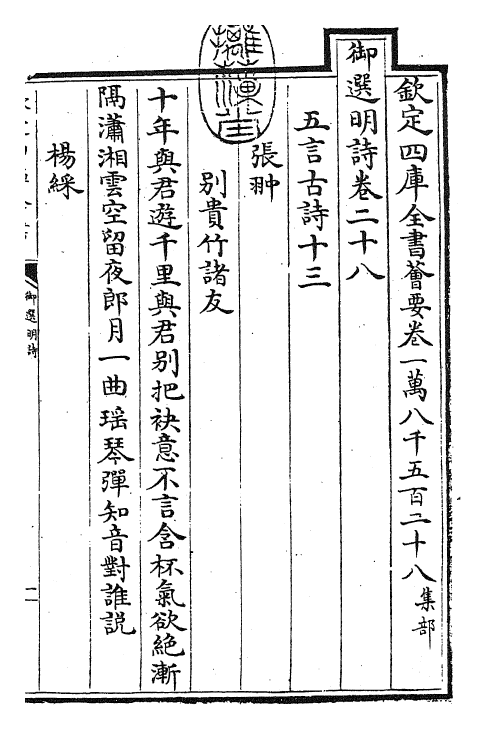 欽定四庫全書薈要卷一萬八千五百二十八集部
御選明詩卷二十八
五言古詩十三
張翀
别貴竹諸友
十年與君遊千里與君别把袂意不言含杯氣欲絶漸
隔瀟湘雲空留夜郎月一曲瑶琴彈知音對誰説
楊綵
御選明詩
一